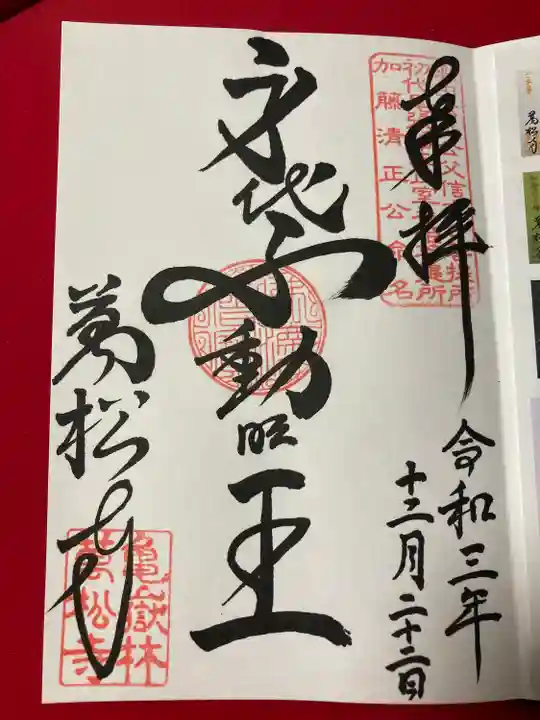 奉拝
令和三年
十二月二十二日
身代不動明王
萬松寺
加藤清正公命名
亀嶽林
萬松寺